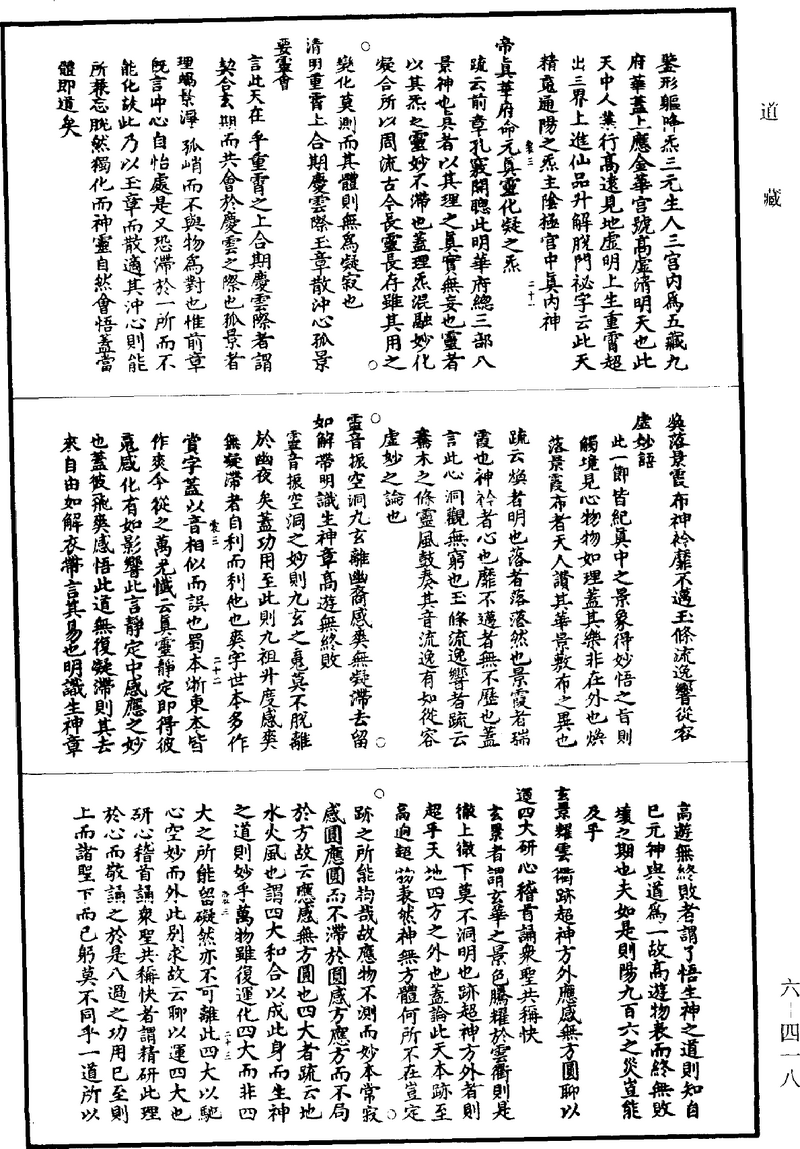 道藏
鍳形軀降炁三元生人三宮內爲五藏九
府華蓋上應金華宮號高虛清明天也此
天中人業行高遠見地虛明上生重霄超
出三界上進仙品升解脫門祕字云此天
精䰟通陽之炁主陰極官中真內神
卷三
二十一
帝真華府命元真靈化凝之炁
疏云前章孔竅開聰此明華府總三部八
景神也真者以其理之真實無妄也靈者
以其炁之靈妙不滯也蓋理炁混融妙化
凝合所以周流古今長靈長存雖其用之
變化莫測而其體則無爲凝寂也
清明重霄上合期慶雲際玉章散沖心孤景
要靈會
言此天在乎重霄之上合期慶雲際者謂
契合玄期而共會於慶雲之際也孤景者
理暢景淨孤峭而不與物爲對也惟前章
旣言冲心自怡處是又恐滯於一所而不
能化故此乃以玉章而散適其沖心則能
所兼忘脫然獨化而神靈自然會悟蓋當
體即道矣
煥落景霞布神衿靡不邁玉條流逸響從容
虛妙語
此一節皆紀真中之景象得妙悟之旨則
觸境見心物物如理蓋其樂非在外也煥
落景霞布者天人讚其華景敷布之異也
疏云煥者明也落者落落然也景霞者瑞
霞也神衿者心也靡不邁者無不歷也蓋
言此心洞觀無窮也玉條流逸響者疏云
騫木之條靈風鼓奏其音流逸有如從容
虛妙之論也
靈音振空洞九玄離幽裔感爽無凝滯去留
如解帶明識生神章高遊無終敗
靈音振空洞之妙則九玄之䰟莫不脫離
於幽夜矣蓋功用至此則九祖升度感爽
無凝滯者自利而利他也爽字世本多作
賞字蓋以音相似而誤也蜀本浙東本皆
卷三
二十二
作爽今從之萬元懺云真靈靜定即得彼
䰟感化有如影響此言靜定中感應之妙
也蓋彼飛爽感悟此道無復凝滯則其去
來自由如解衣帶言其易也明識生神章
高遊無終敗者謂了悟生神之道則知自
已元神與道爲一故高遊物表而終無敗
壞之期也夫如是則陽九百六之災豈能
及乎
玄景耀雲衢跡超神方外應感無方圓聊以
運四大研心稽首誦衆聖共稱快
玄景者謂玄華之景色騰耀於雲衢則是
徹上徹下莫不洞明也跡超神方外者則
超乎天地四方之外也蓋論此天本跡至
高迥超物表然神無方體何所不在豈定
跡之所能拘哉故應物不測而妙本常寂
感圓應圓而不滯於圓感方應方而不局
於方故云應感無方圓也四大者疏云地
水火風也謂四大和合以成此身而生神
之道則妙乎萬物雖復運化四大而非四
卷三
二十三
大之所能留礙然亦不可離此四大以馳
心空妙而外此別求故云聊以運四大也
研心稽首誦衆聖共稱快者謂精研此理
於心而敬誦之於是八過之功用已至則
上而諸聖下而已躬莫不同乎一道所以
六－四一八